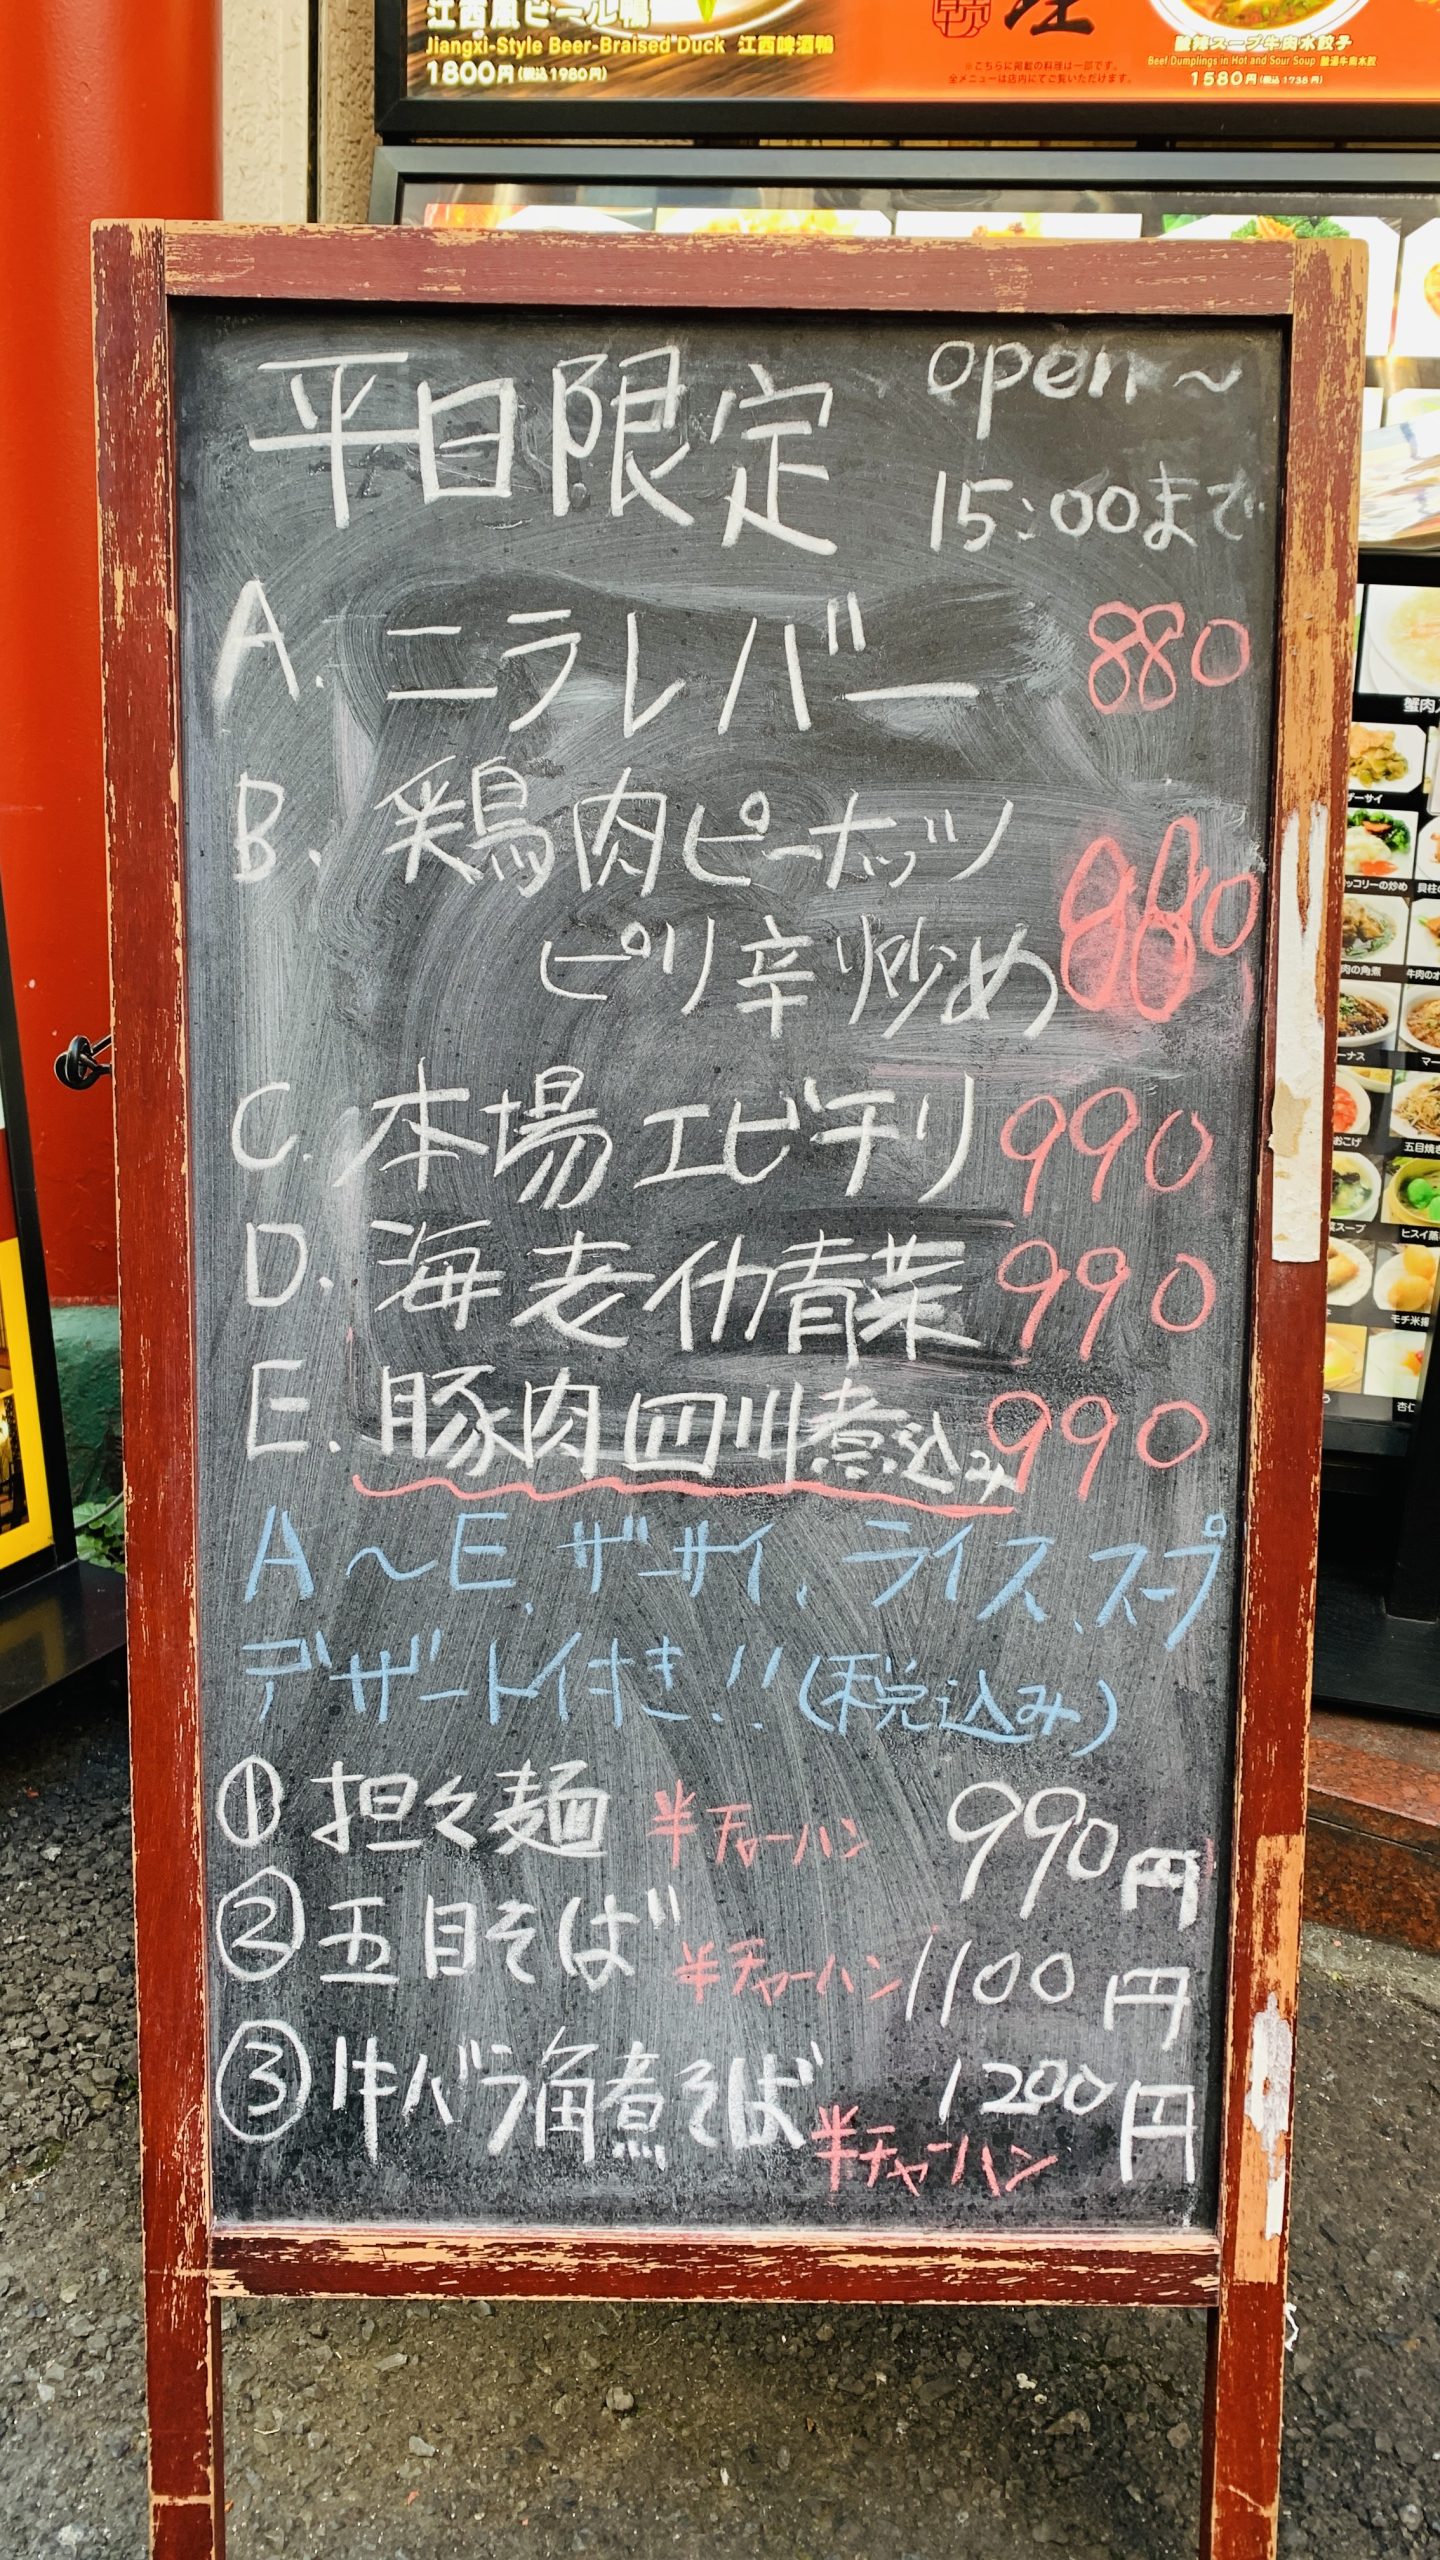 江西風ビール鴨
Jiangxi-Style Beer-Braised Duck 江西啤酒鴨
1800円(税込1980円)
※こちらに掲載の料理は一部です。
全メニューは店内にてご覧いただけます。
理
酸辣スープ牛肉水餃子
Beef Dumplings in Hot and Sour Soup 酸湯牛肉水餃
1580円(税込1738円)
平日限定 open〜
15:00まで
A. ニラレバー 880
B. 鶏肉ピーナッツ
ピリ辛炒め 880
C. 本場エビチリ 990
D. 海老什青菜 990
E. 豚肉四川煮込み 990
A〜E、ザーサイ、ライス、スープ
デザート付き!!(税込み)
① 担々麺 半チャーハン 990円
② 五目そば 半チャーハン 1100円
③ 牛バラ角煮そば 半チャーハン 1200円
蟹肉
ザーサイ
ッコリーの炒め
貝柱の
肉の角煮
牛肉のオ
ーナス
マー
おこげ
五目焼き
菜スープ
ヒスイ蒸
モチ米揚
杏仁